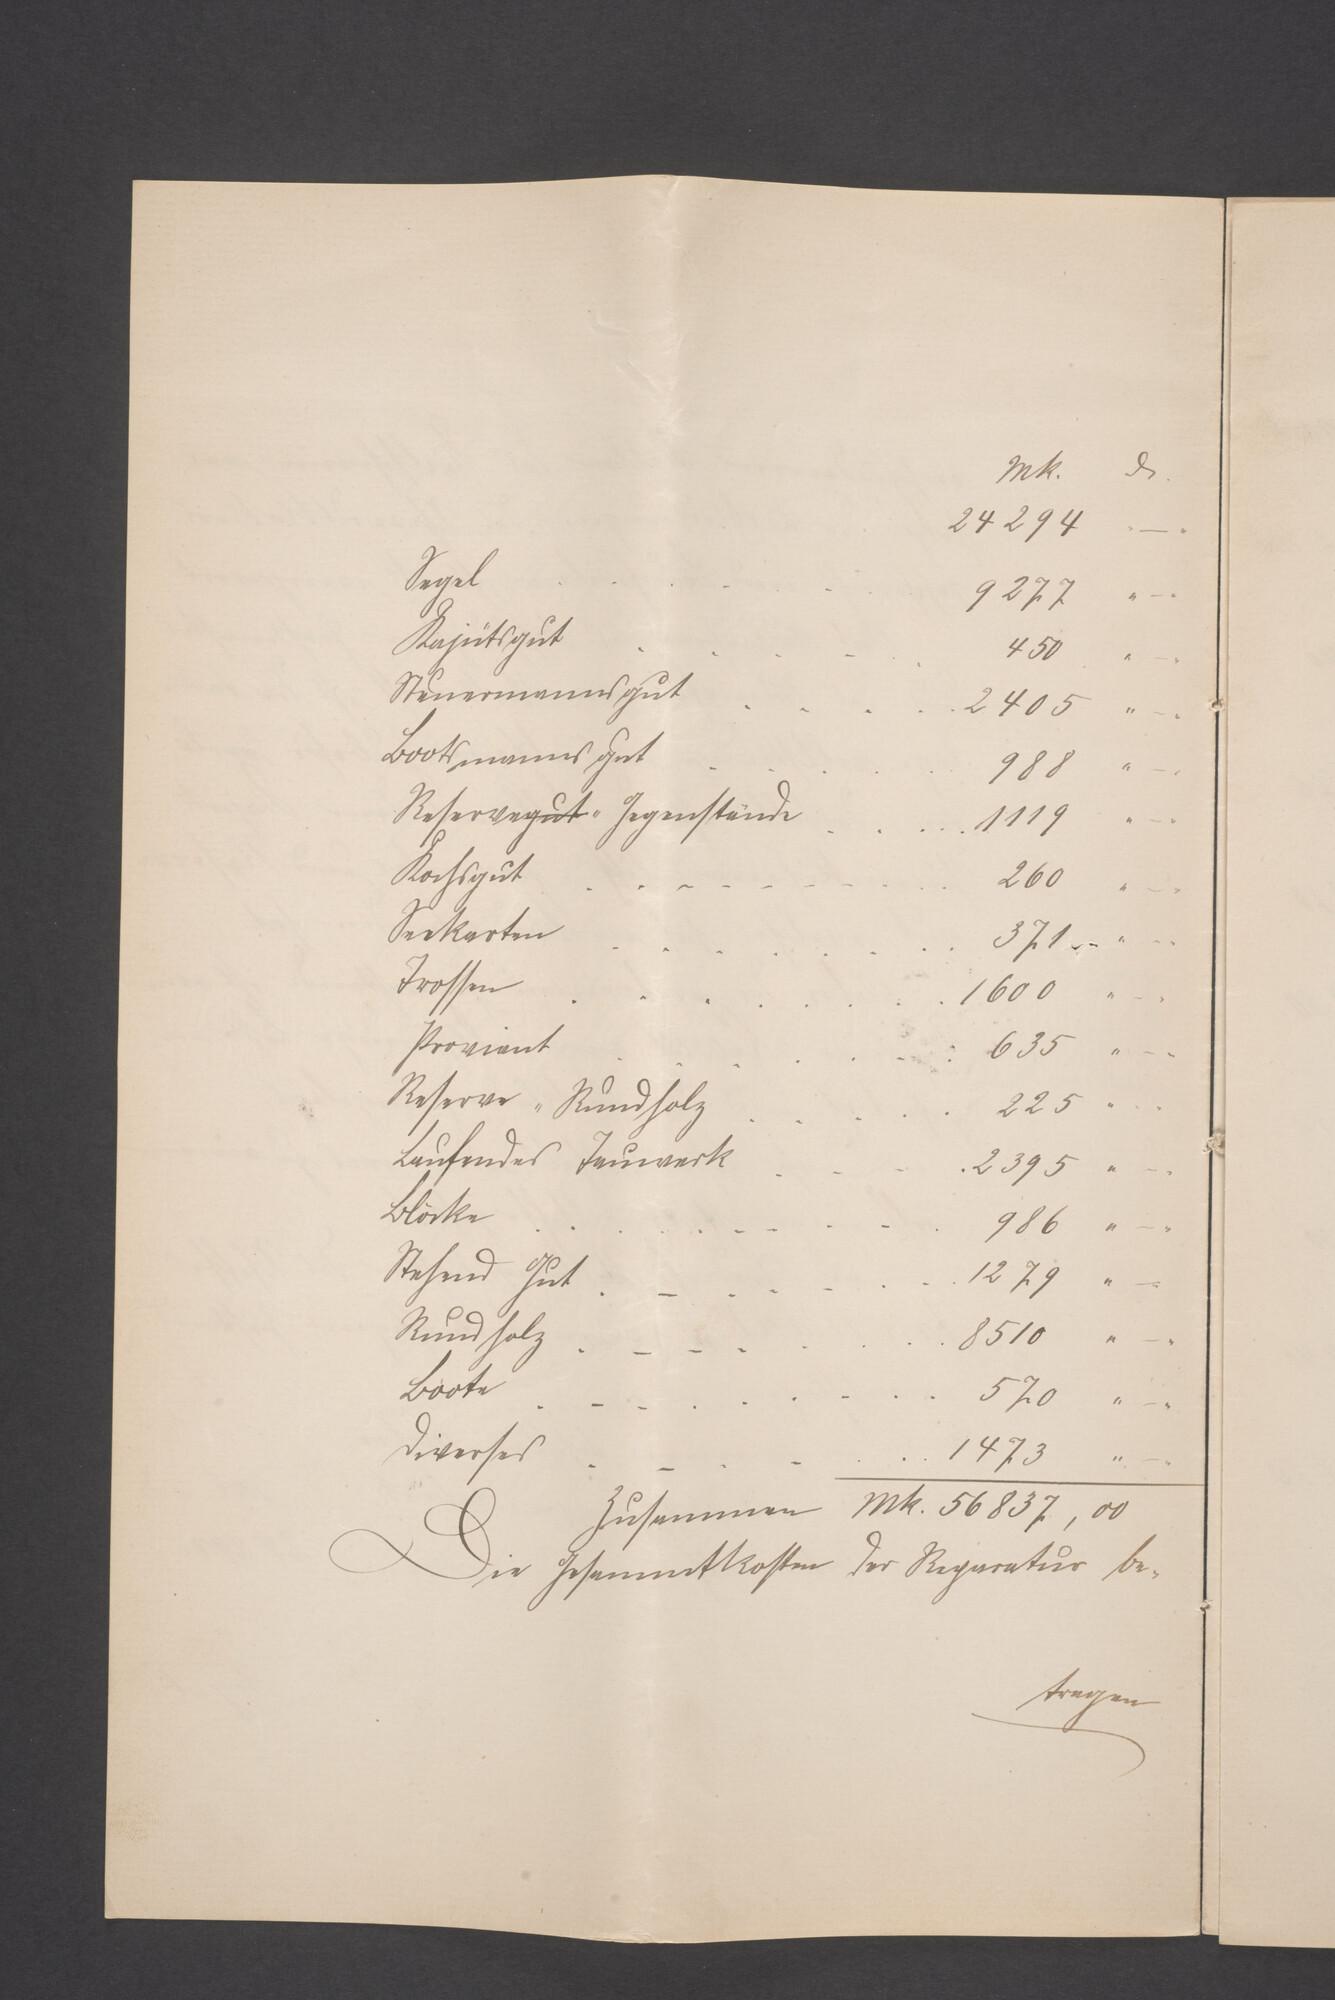 Mk. ₰.
24294 „ — „
Segel . . . . . . 9277 „ — „
Kajütsgut . . . . . 450 „ — „
Steuermannsgut . . . . . 2405 „ — „
Bootsmannsgut . . . . . 988 „ — „
Reservegut-Gegenstände . . . . . 1119 „ — „
Kochsgut . . . . . . . . 260 „ — „
Seekarten . . . . . . . 371 „ — „
Trossen . . . . . . . 1600 „ — „
Proviant . . . . . . . 635 „ — „
Reserve-Rundholz . . . . . 225 „ — „
Laufendes Tauwerk . . . . 2395 „ — „
Blöcke . . . . . . . . 986 „ — „
Stehend Gut . . . . . . . 1279 „ — „
Rundholz . . . . . . . 8510 „ — „
Boote . . . . . . . . 570 „ — „
Diverses . . . . . . . 1473 „ — „
Zusammen Mk. 56837,00
Die Gesammtkosten der Reparatur be-
tragen